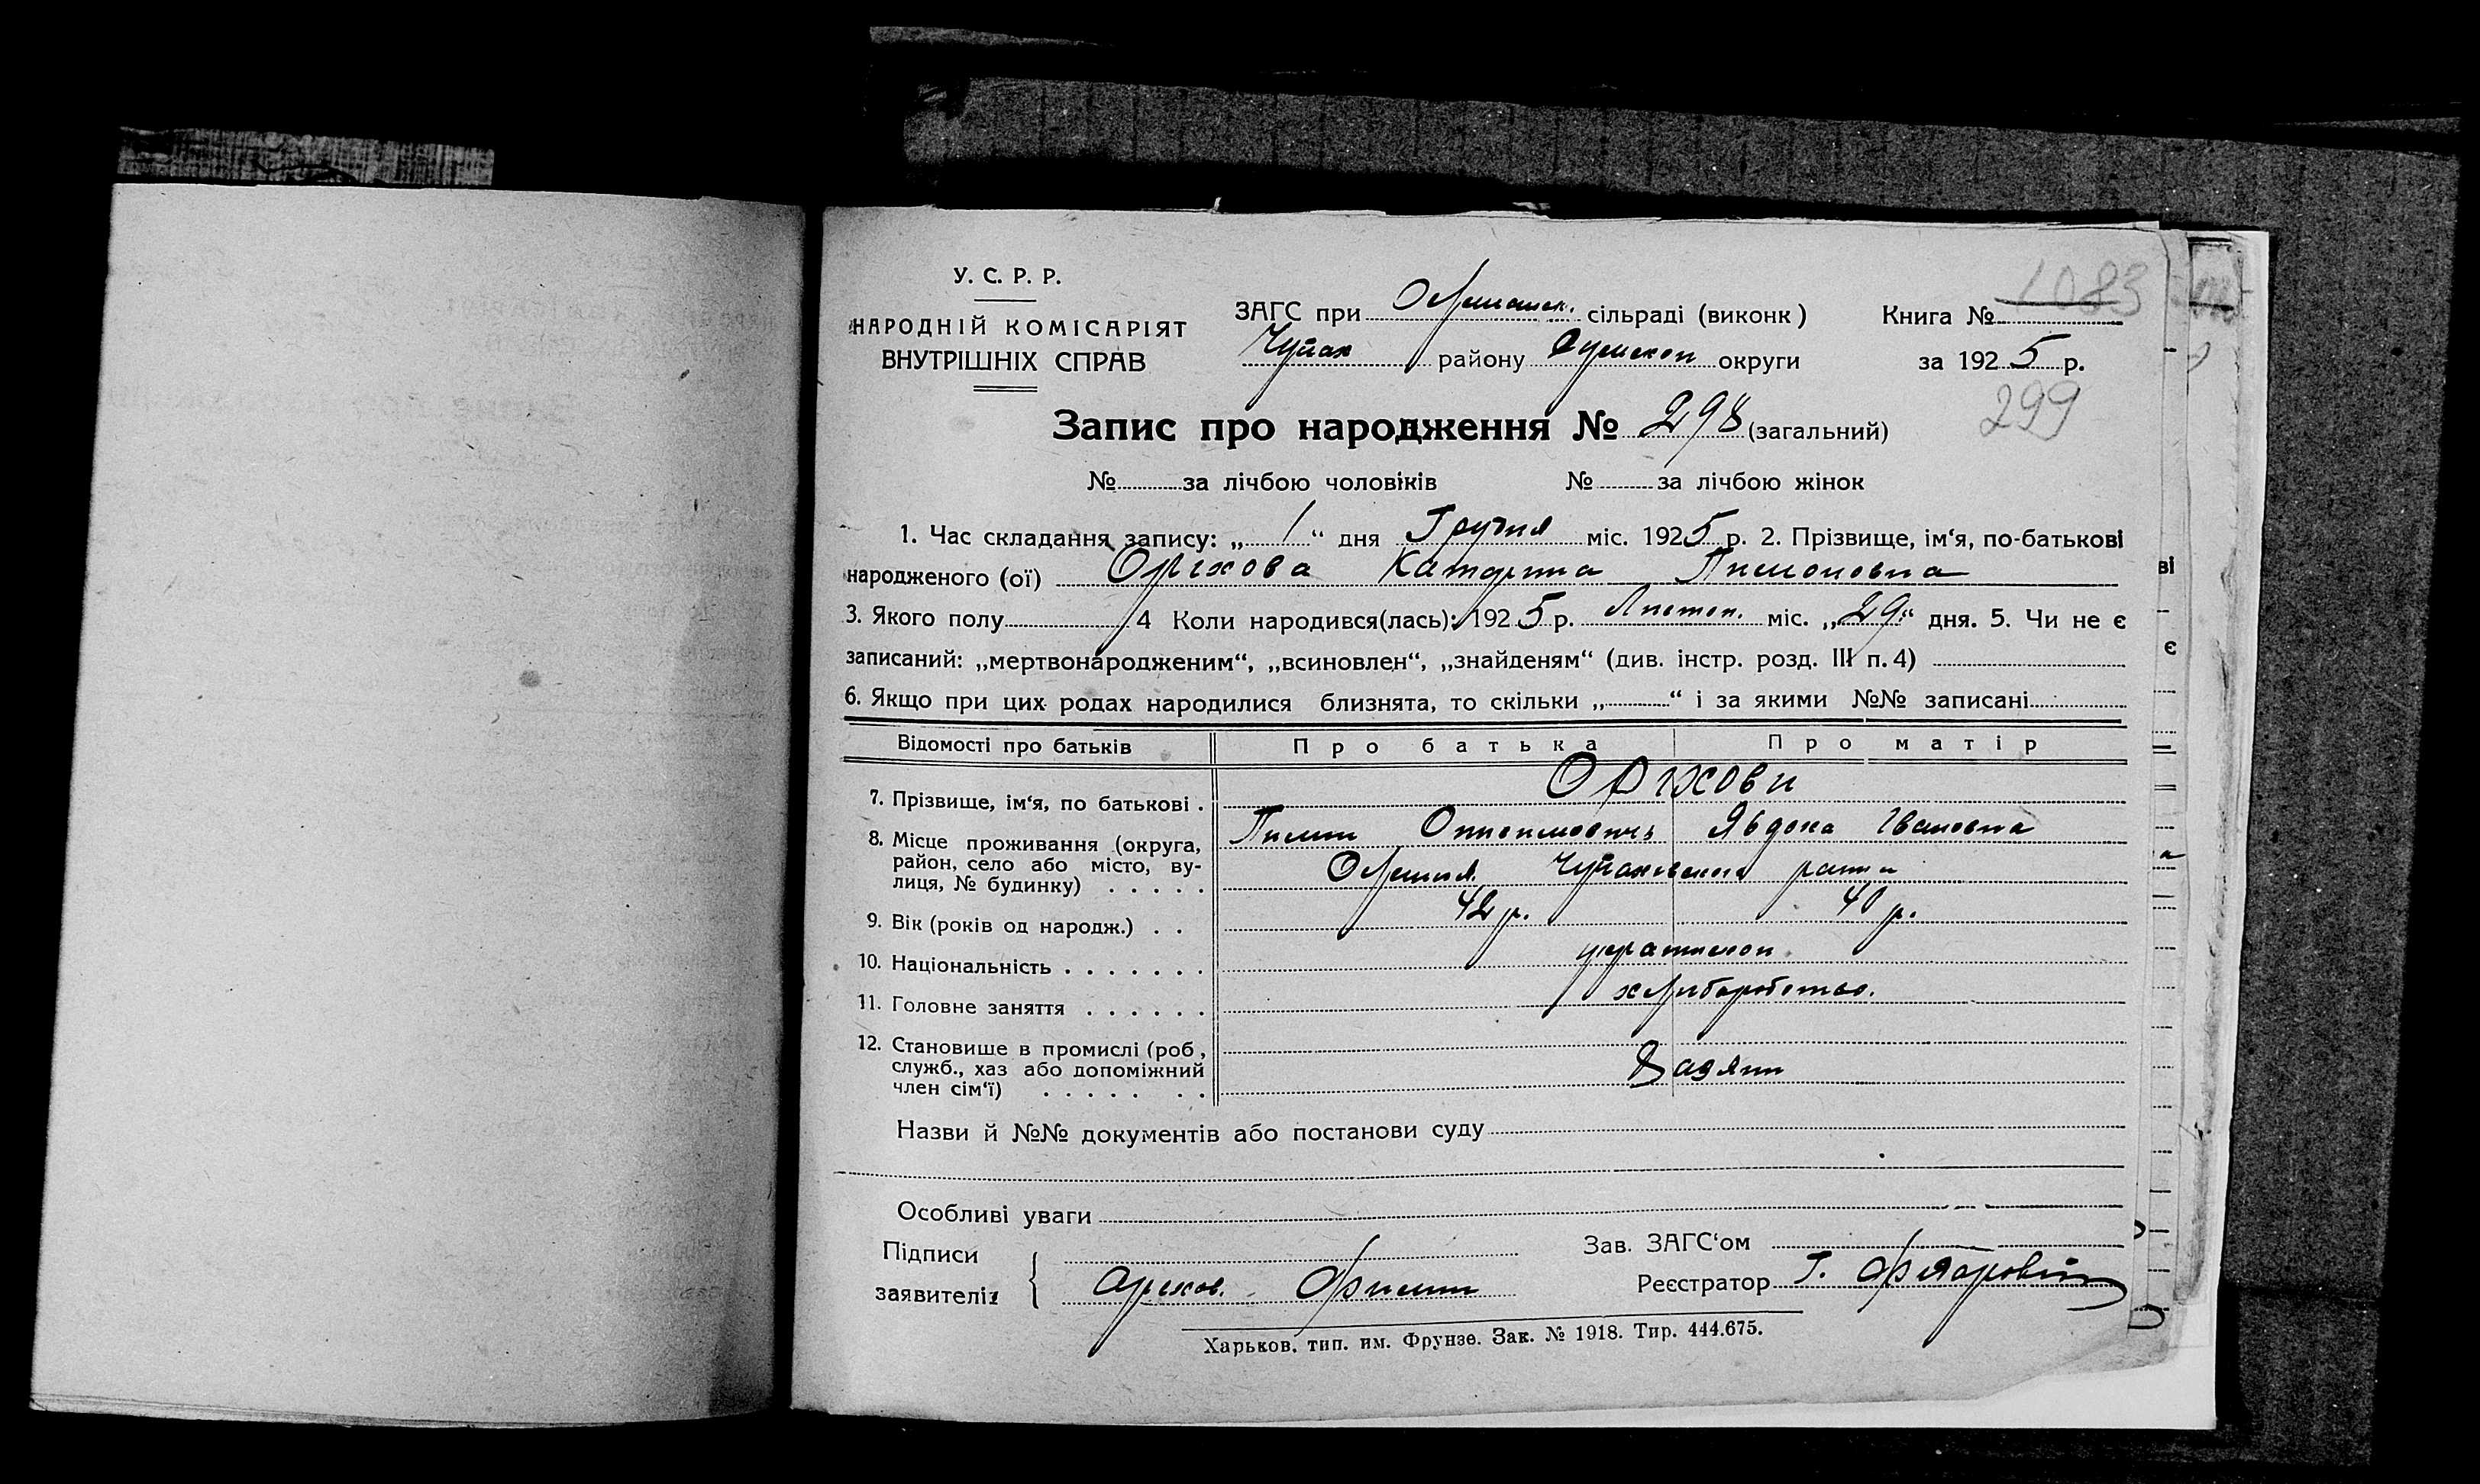 У. С. Р. Р.
НАРОДНІЙ КОМІСАРІЯТ
ВНУТРІШНІХ СПРАВ
ЗАГС при Олешанск. сільраді (виконк)
Чупах району Сумскои округи
Книга № 1083
за 1925 р.
299
Запис про народження № 298 (загальний)
№ за лічбою чоловіків № за лічбою жінок
1. Час складання запису: „ 1 “ дня Грудня міс. 1925 р. 2. Прізвище, ім‘я, по-батькові
народженого (ої) Оріхова Катерина Пилиповна
3. Якого полу 4 Коли народився(лась): 1925 р. Листоп. міс. „29“ дня. 5. Чи не є
записаний: „мертвонародженим“, „всиновлен“, „знайденям“ (див. інстр. розд. III п. 4)
6. Якщо при цих родах народилися близнята, то скільки „ “ і за якими №№ записані
Відомості про батьків Про батька Про матір
7. Прізвище, ім‘я, по батькові . Оріхови
Пилип Явдоха Івановна
8. Місце проживання (округа, район, село або місто, вулиця, № будинку) . . . . . Олешня Чупаховского
9. Вік (років од народж.) . . 42 р. 40 р.
10. Національність . . . . . . . украинскои
11. Головне заняття . . . . . . хліборобство.
12. Становише в промислі (роб, служб., хаз або допоміжний член сім‘ї) . . . . . . .
Назви й №№ документів або постанови суду
Особливі уваги
Підписи
заявителів { Орехов. Филип
Зав. ЗАГС‘ом
Реєстратор Г.
Харьков. тип. им. Фрунзе. Зак. № 1918. Тир. 444.675.